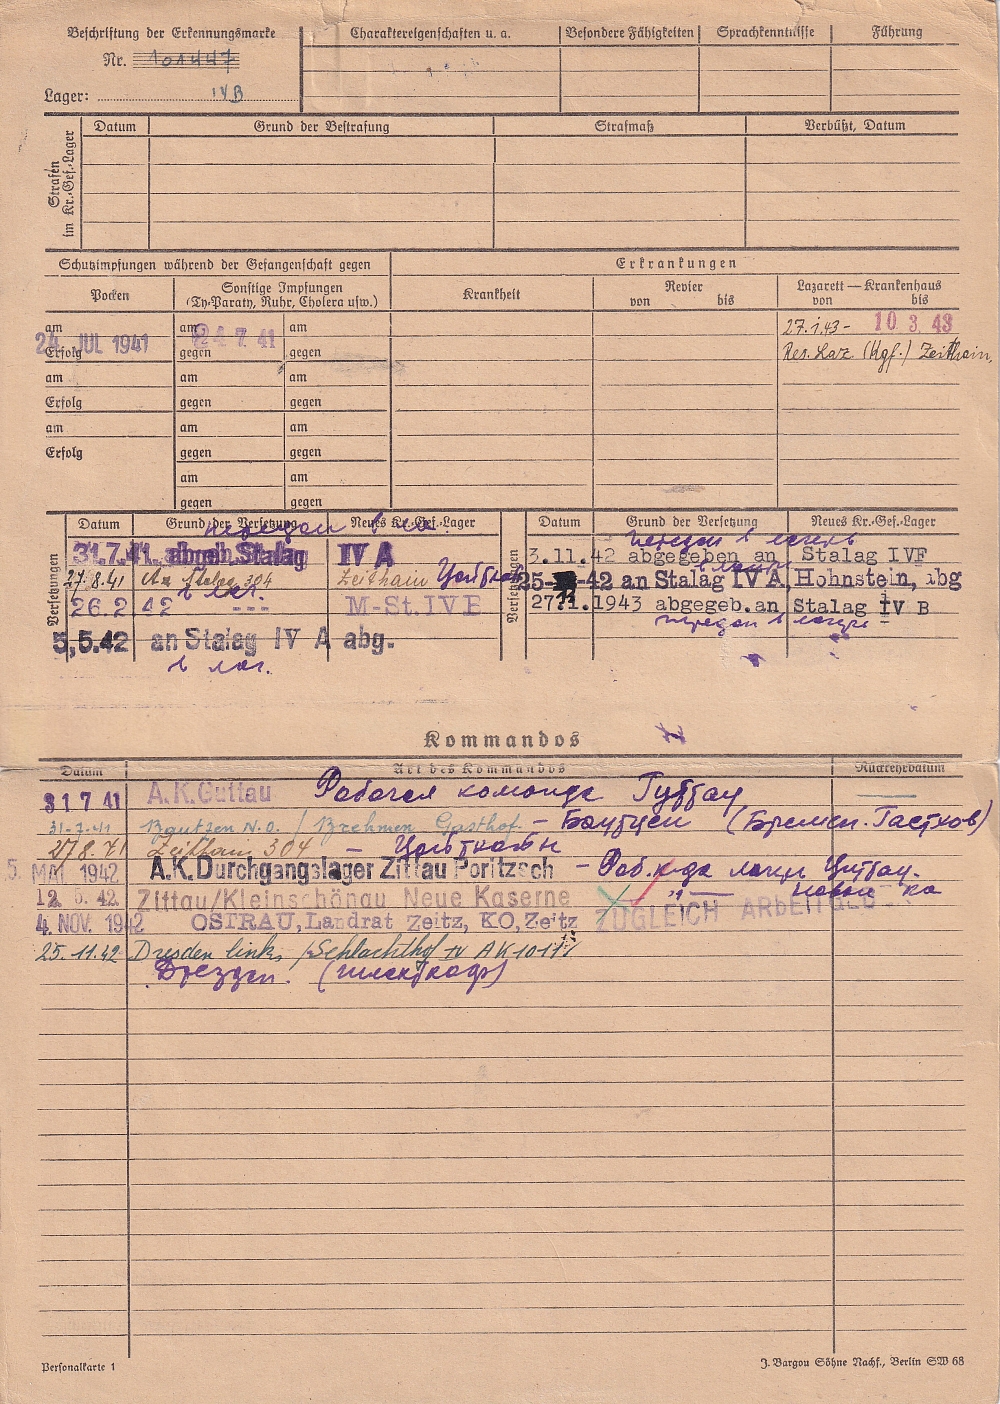 Beschriftung der Erkennungsmarke
Nr. 101447
Lager: IVB
Charaktereigenschaften u. a. Besondere Fähigkeiten Sprachkenntnisse Führung
Strafen im Kr.-Gef.-Lager
Datum Grund der Bestrafung Strafmaß Verbüßt, Datum
Schutzimpfungen während der Gefangenschaft gegen
Erkrankungen
Pocken
Sonstige Impfungen
(Ty-Paraty, Ruhr, Cholera usw.)
Krankheit
Revier
von bis
Lazarett — Krankenhaus
von bis
am am am
24. JUL 1941 24. 7. 41
27.1.43 - 10. 3. 43
Erfolg gegen gegen
Res. Laz. (Kgf.) Zeithain,
am am am
Erfolg gegen gegen
am am am
Erfolg gegen gegen
am am
gegen gegen
Versetzungen
Datum Grund der Versetzung Neues Kr.-Gef.-Lager
передан в ла.
31.7.41. abgeb. Stalag IV A
27.8.41 An Stalag 304 Zeithain Цайтхайн
в лаг.
26.2 42 --- M-St. IV B
5.5.42 an Stalag IV A abg.
в лаг.
Versetzungen
Datum Grund der Versetzung Neues Kr.-Gef.-Lager
передан в лагерь
3.11.42 abgegeben an Stalag IVF
в лагерь
25- -42 an Stalag IV A, Hohnstein, abg
27.1.1943 abgegeb. an Stalag IV B
передан в лагерь
Kommandos
Datum Art des Kommandos Rückkehrdatum
31 7 41 A.K. Guttau Рабочая команда Гуттау
31-7.41 Bautzen N.O. / Brehmen Gasthof - Баутцен (Бремен. Гастхов)
27 8. 41 Zeithain 304 - Цайтхайн
5. MAI 1942 A.K. Durchgangslager Zittau Poritzsch - Раб. к-да лагерь Циттау.
12. 5. 42. Zittau/Kleinschönau Neue Kaserne — " — новая ка
ZUGLEICH ARBEITGEB
4. NOV. 1942 OSTRAU, Landrat Zeitz, KO, Zeitz
25.11.42 Dresden links / Schlachthof IV AK 1011
Дрезден. (шлехтхоф)
Personalkarte 1
J. Bargou Söhne Nachf., Berlin SW 68